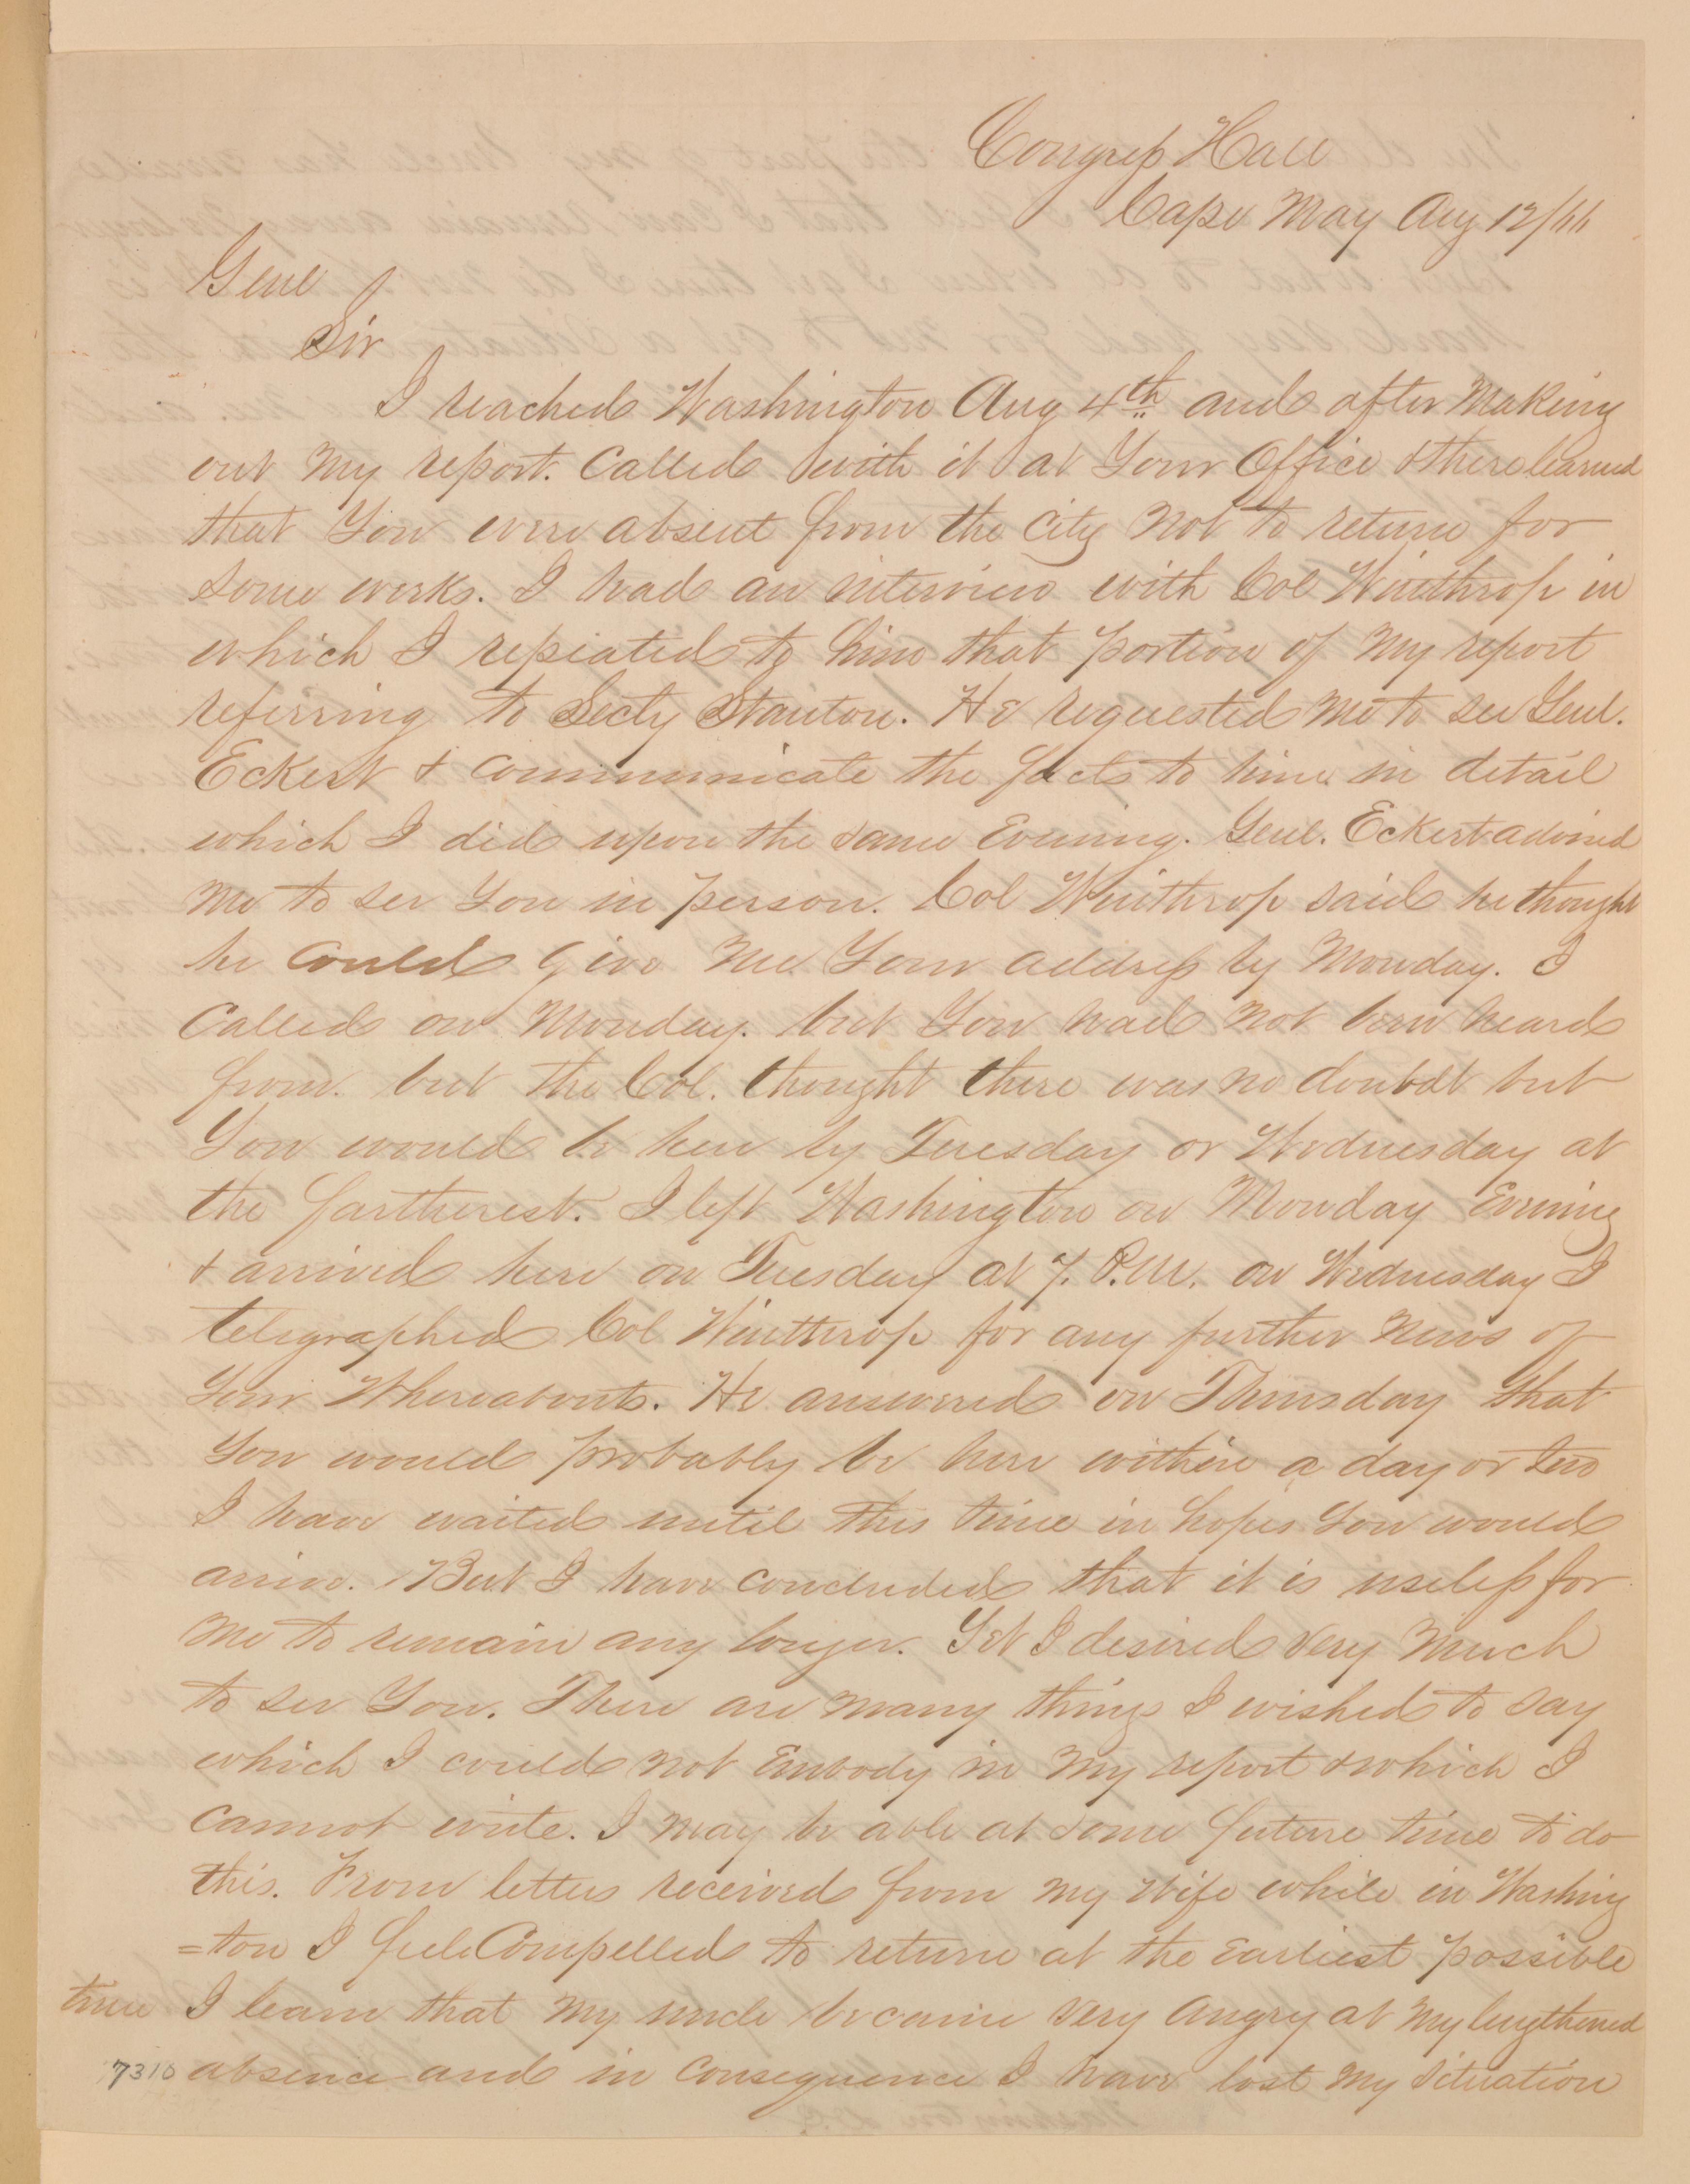 Congress Hall
Cape May Aug 12/66
Genl
Sir
I reached Washington Aug 4th and after Making
out My report. Called with it at Your Office & there learned
that You were absent from the City Not to return for
some weeks. I had an interview with Col Winthrop in
which I repeated to him that portion of My report
referring to Secty Stanton. He requested Me to see Genl.
Eckert & communicate the facts to him in detail
which I did upon the same Evening. Genl. Eckert advised
Me to see You in person. Col Winthrop said he thought
he Could Give Me Your address by Monday. I
Called on Monday. but You had Not been heard
from. but the Col. thought there was no doubt but
You would be here by Tuesday or Wednesday at
the fartherest. I left Washington on Monday Evening
& arrived here on Tuesday at 7. P.M. on Wednesday I
telegraphed Col Winthrop for any further News of
Your Whereabouts. He answered on Thursday that
You would probably be here within a day or two
I have waited until this time in hopes You would
arrive. But I have concluded that it is useless for
Me to remain any longer. Yet I desired Very Much
to see You. There are many things I wished to say
which I could not Embody in My report & which I
Cannot write. I May be able at some future time to do
this. From letters received from my Wife while in Washing
=ton I feel Compelled to return at the Earliest possible
time I learn that My uncle became very Angry at My lengthened
7310 absence and in consequence I have lost My situation